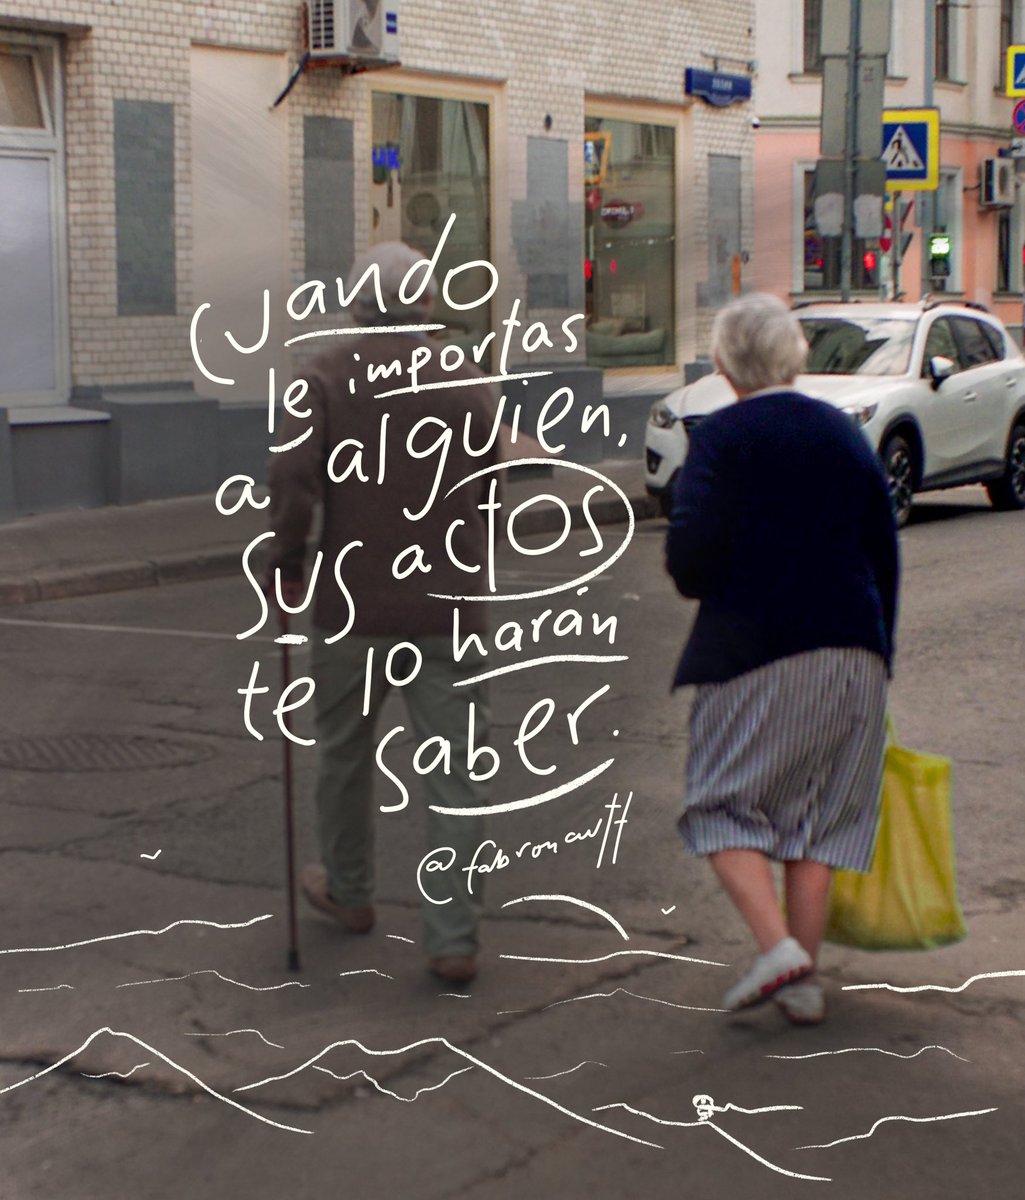 Cuando
le importas
a alguien,
sus actos
te lo harán
saber.
@fabronawtt